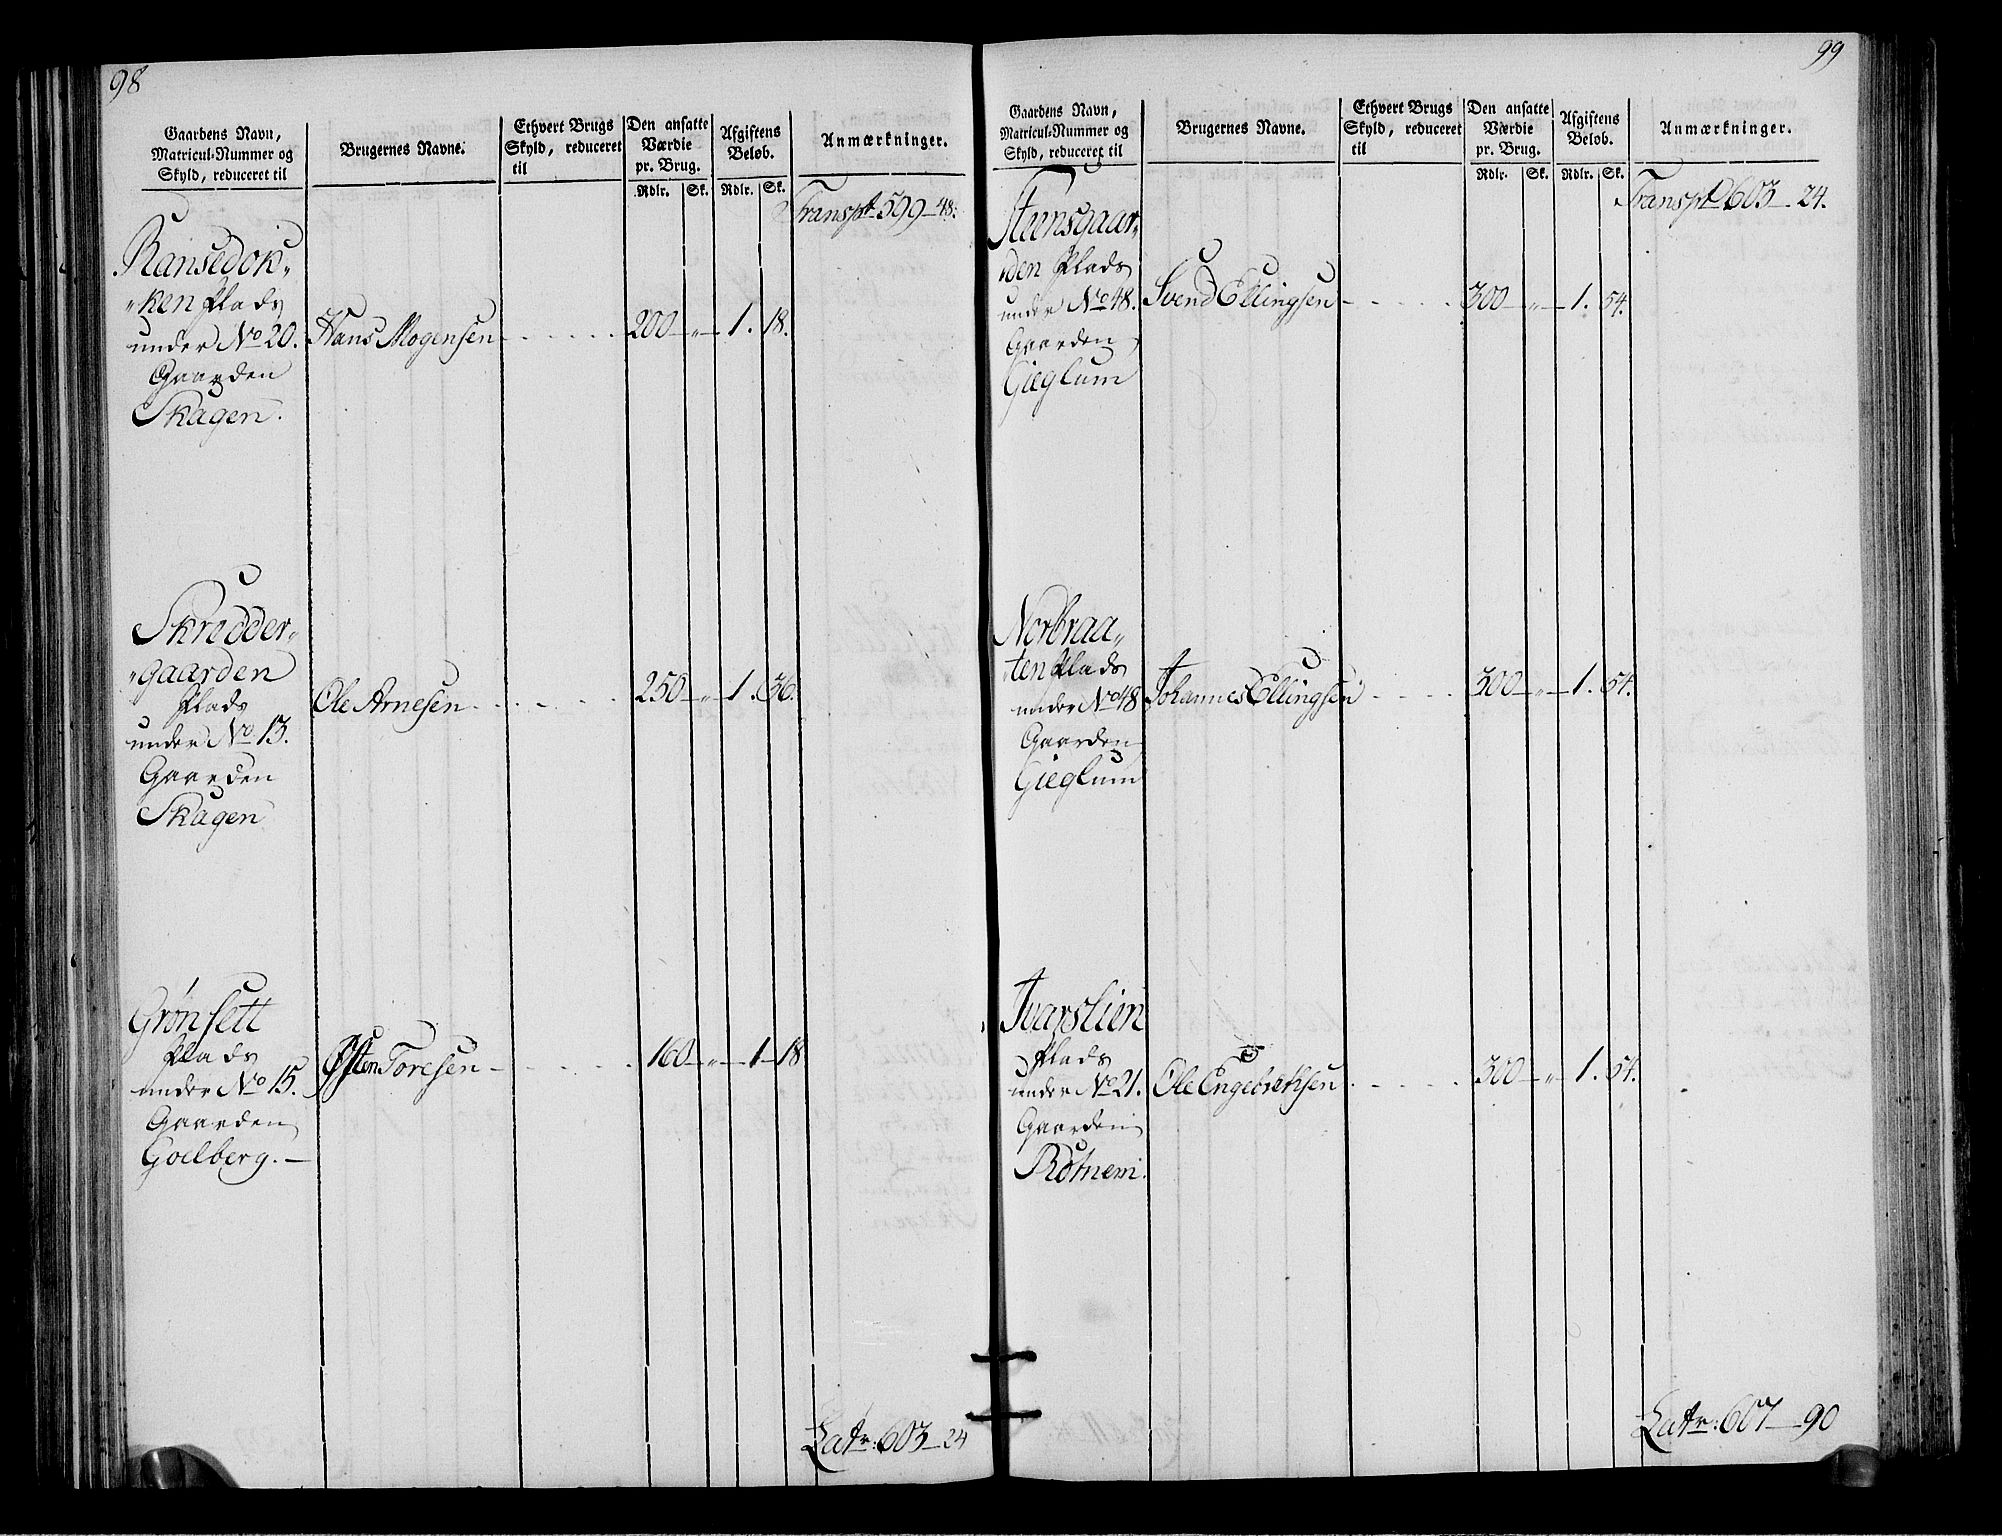 98
Gaardens Navn,
Matricul-Nummer og
Skyld, reduceret til
Brugernes Navne.
Ethvert Brugs
Skyld, reduceret
til
Den ansatte
Værdie
pr. Brug.
Rdlr. Sk.
Afgiftens
Beløb.
Rdlr. Sk.
Anmærkninger.
Transpt 599-48.
Ransedok-
ken Plads
under No 20. Hans Mogensen 200 - „ - 1. 18.
Gaarden
Skagen.
Skredder-
gaarden
Plads Ole Arnesen 250 - „ - 1. 36.
under No 13.
Gaarden
Skagen
Grønsett
Plads Østen Toresen 160 - „ - 1 - 18
under No 15.
Gaarden
Goelberg.
Latr: 603-24
99
Gaardens Navn,
Matricul-Nummer og
Skyld, reduceret til
Brugernes Navne.
Ethvert Brugs
Skyld, reduceret
til
Den ansatte
Værdie
pr. Brug.
Rdlr. Sk.
Afgiftens
Beløb.
Rdlr. Sk.
Anmærkninger.
Transpt 603-24.
Steensgaar-
den Plads
under No 48. Svend Ellingsen 300 - „ - 1. 54.
Gaarden
Gieglum
Norbraa-
ten Plads
under No 48 Johannes Ellingsen 300 - „ - 1. 54.
Gaarden
Gieglum
Ivarslien
Plads
under No 21. Ole Engebrethsen 300 - „ - 1. 54.
Gaarden
Rotnem.
Latr: 607-90